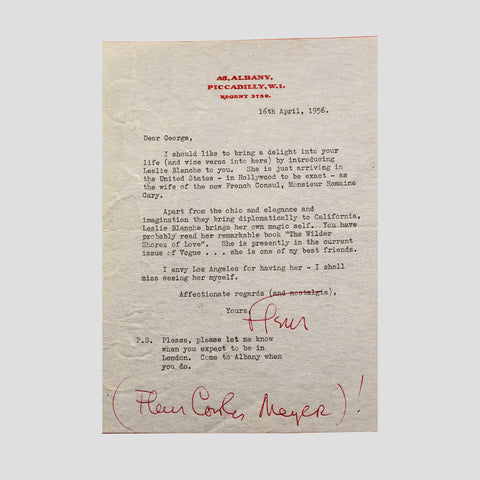 A5, ALBANY,
PICCADILLY, W.1.
REGENT 3156.
16th April, 1956.
Dear George,
I should like to bring a delight into your
life (and vice versa into hers) by introducing
Leslie Blanche to you. She is just arriving in
the United States - in Hollywood to be exact - as
the wife of the new French Consul, Monsieur Romaine
Gary.
Apart from the chic and elegance and
imagination they bring diplomatically to California,
Leslie Blanche brings her own magic self. You have
probably read her remarkable book "The Wilder
Shores of Love". She is presently in the current
issue of Vogue . . . she is one of my best friends.
I envy Los Angeles for having her - I shall
miss seeing her myself.
Affectionate regards (and nostalgia),
Yours,
Fleur
P.S. Please, please let me know
when you expect to be in
London. Come to Albany when
you do.
(Fleur Cowles Meyer)!